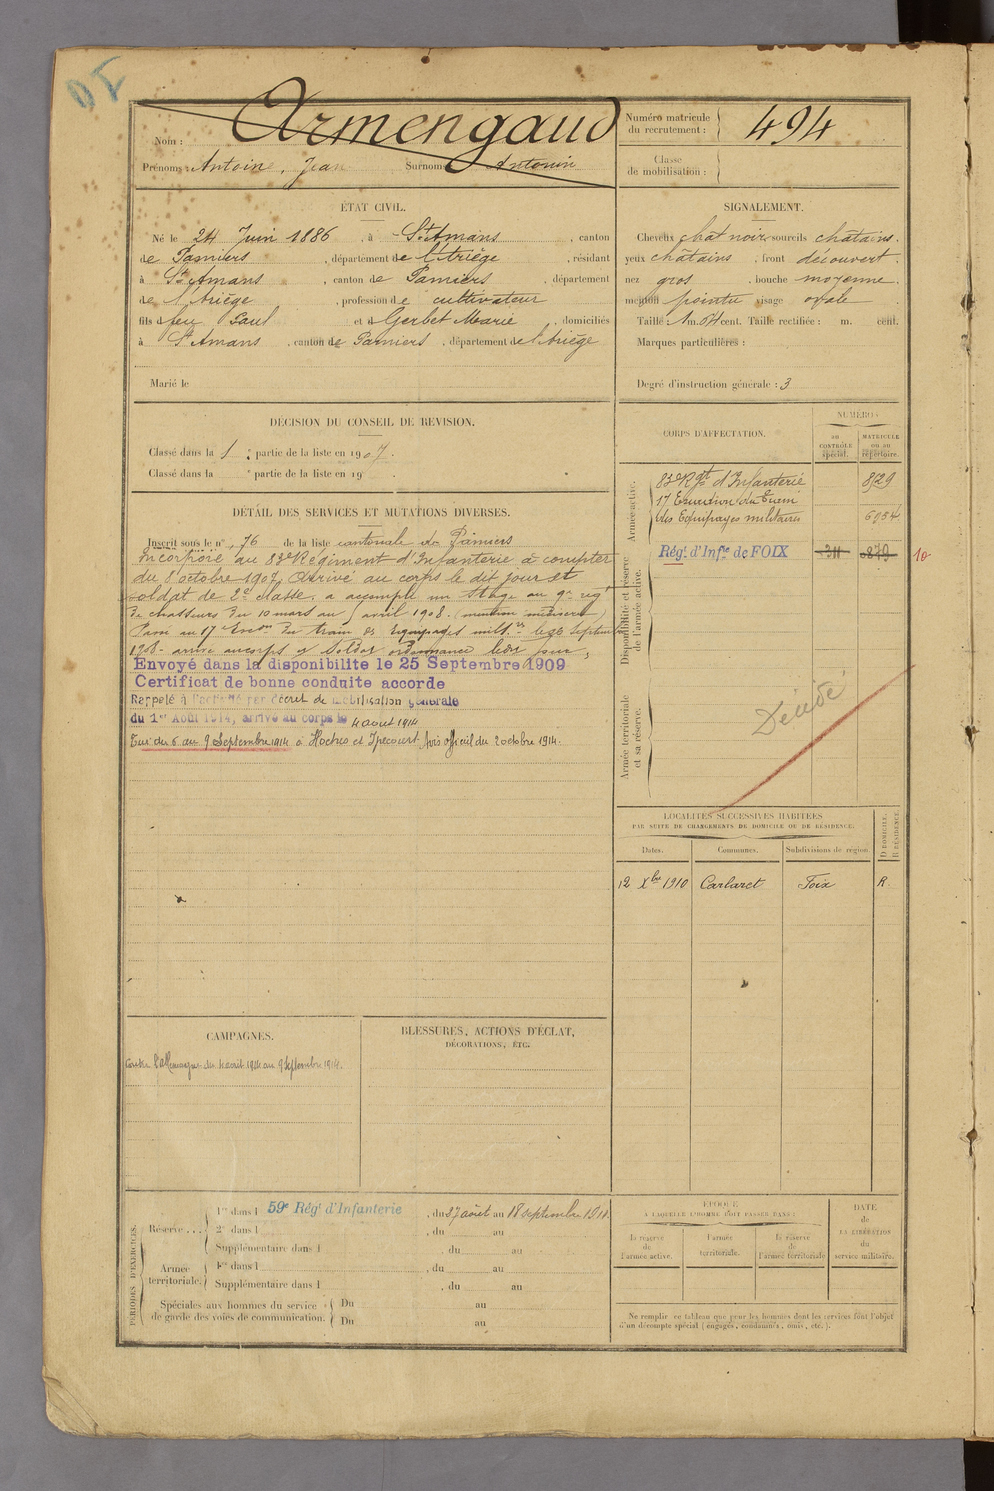 Nom : Armengaud
Prénoms : Antoine, Jean Surnom : Antonin
Numéro matricule du recrutement : 494
Classe de mobilisation :
ÉTAT CIVIL.
Né le 24 Juin 1886, à St Amans, canton
de Pamiers, département de l'Ariège, résidant
à St Amans, canton de Pamiers, département
de l'Ariège, profession de cultivateur
fils de feu Paul et de Gerbet Marie, domiciliés
à St Amans, canton de Pamiers, département de l'Ariège
Marié le
SIGNALEMENT.
Cheveux chat noir sourcils châtains.
yeux châtains, front découvert.
nez gros, bouche moyenne.
menton pointu visage ovale
Taille : 1m. 64 cent. Taille rectifiée : m. cent.
Marques particulières :
Degré d'instruction générale : 3
DÉCISION DU CONSEIL DE REVISION.
Classé dans la 1 partie de la liste en 1907.
Classé dans la partie de la liste en 19
DÉTAIL DES SERVICES ET MUTATIONS DIVERSES.
Inscrit sous le n° 76 de la liste cantonale de Pamiers
Incorporé au 83e Régiment d'Infanterie à compter
du 8 octobre 1907. Arrivé au corps le dit jour et
soldat de 2e classe. a accompli un stage au 9e regt
de chasseurs du 10 mars au avril 1908. (mention médiocre)
Passé au 17 Escon du train des Equipages milit.res le 25 Septembre
1908. arrivé au corps et soldat ordonnance le dit jour ;
Envoyé dans la disponibilite le 25 Septembre 1909
Certificat de bonne conduite accorde
Rappelé à l'activité par décret de mobilisation générale
du 1er Août 1914, arrivé au corps le 4 aout 1914
Tué du 6 au 9 Septembre 1914 à et Ippecourt Avis officiel du 2 octobre 1914.
CORPS D'AFFECTATION.
NUMÉROS
au CONTRÔLE spécial.
MATRICULE ou au répertoire.
Armée active.
83e Rgt d'Infanterie 829
17 Escadron du Train
des Equipages militaires 6954
Disponibilité et réserve de l'armée active.
Régt d'Infie de FOIX 311 879 10
Armée territoriale et sa réserve.
Décédé
LOCALITÉS SUCCESSIVES HABITÉES
PAR SUITE DE CHANGEMENTS DE DOMICILE OU DE RÉSIDENCE.
Dates. Communes. Subdivisions de région. D DOMICILE. R RÉSIDENCE.
12 Xbre 1910 Carlaret Foix R.
CAMPAGNES.
Contre l'Allemagne du 4 aout 1914 au 9 septembre 1914.
BLESSURES, ACTIONS D'ÉCLAT,
DÉCORATIONS, ETC.
PÉRIODES D'EXERCICES.
Réserve...
1re dans l 59e Régt d'Infanterie, du 27 août au 18 septembre 1911
2e dans l, du au
Supplémentaire dans l du au
Armée territoriale.
1re dans l, du au
Supplémentaire dans l, du au
Spéciales aux hommes du service de garde des voies de communication.
Du au
Du au
ÉPOQUE
À LAQUELLE L'HOMME DOIT PASSER DANS :
la réserve de l'armée active.
l'armée territoriale.
la réserve de l'armée territoriale
DATE de LA LIBÉRATION du service militaire.
Ne remplir ce tableau que pour les hommes dont les services font l'objet
d'un décompte spécial (engagés, condamnés, omis, etc.).